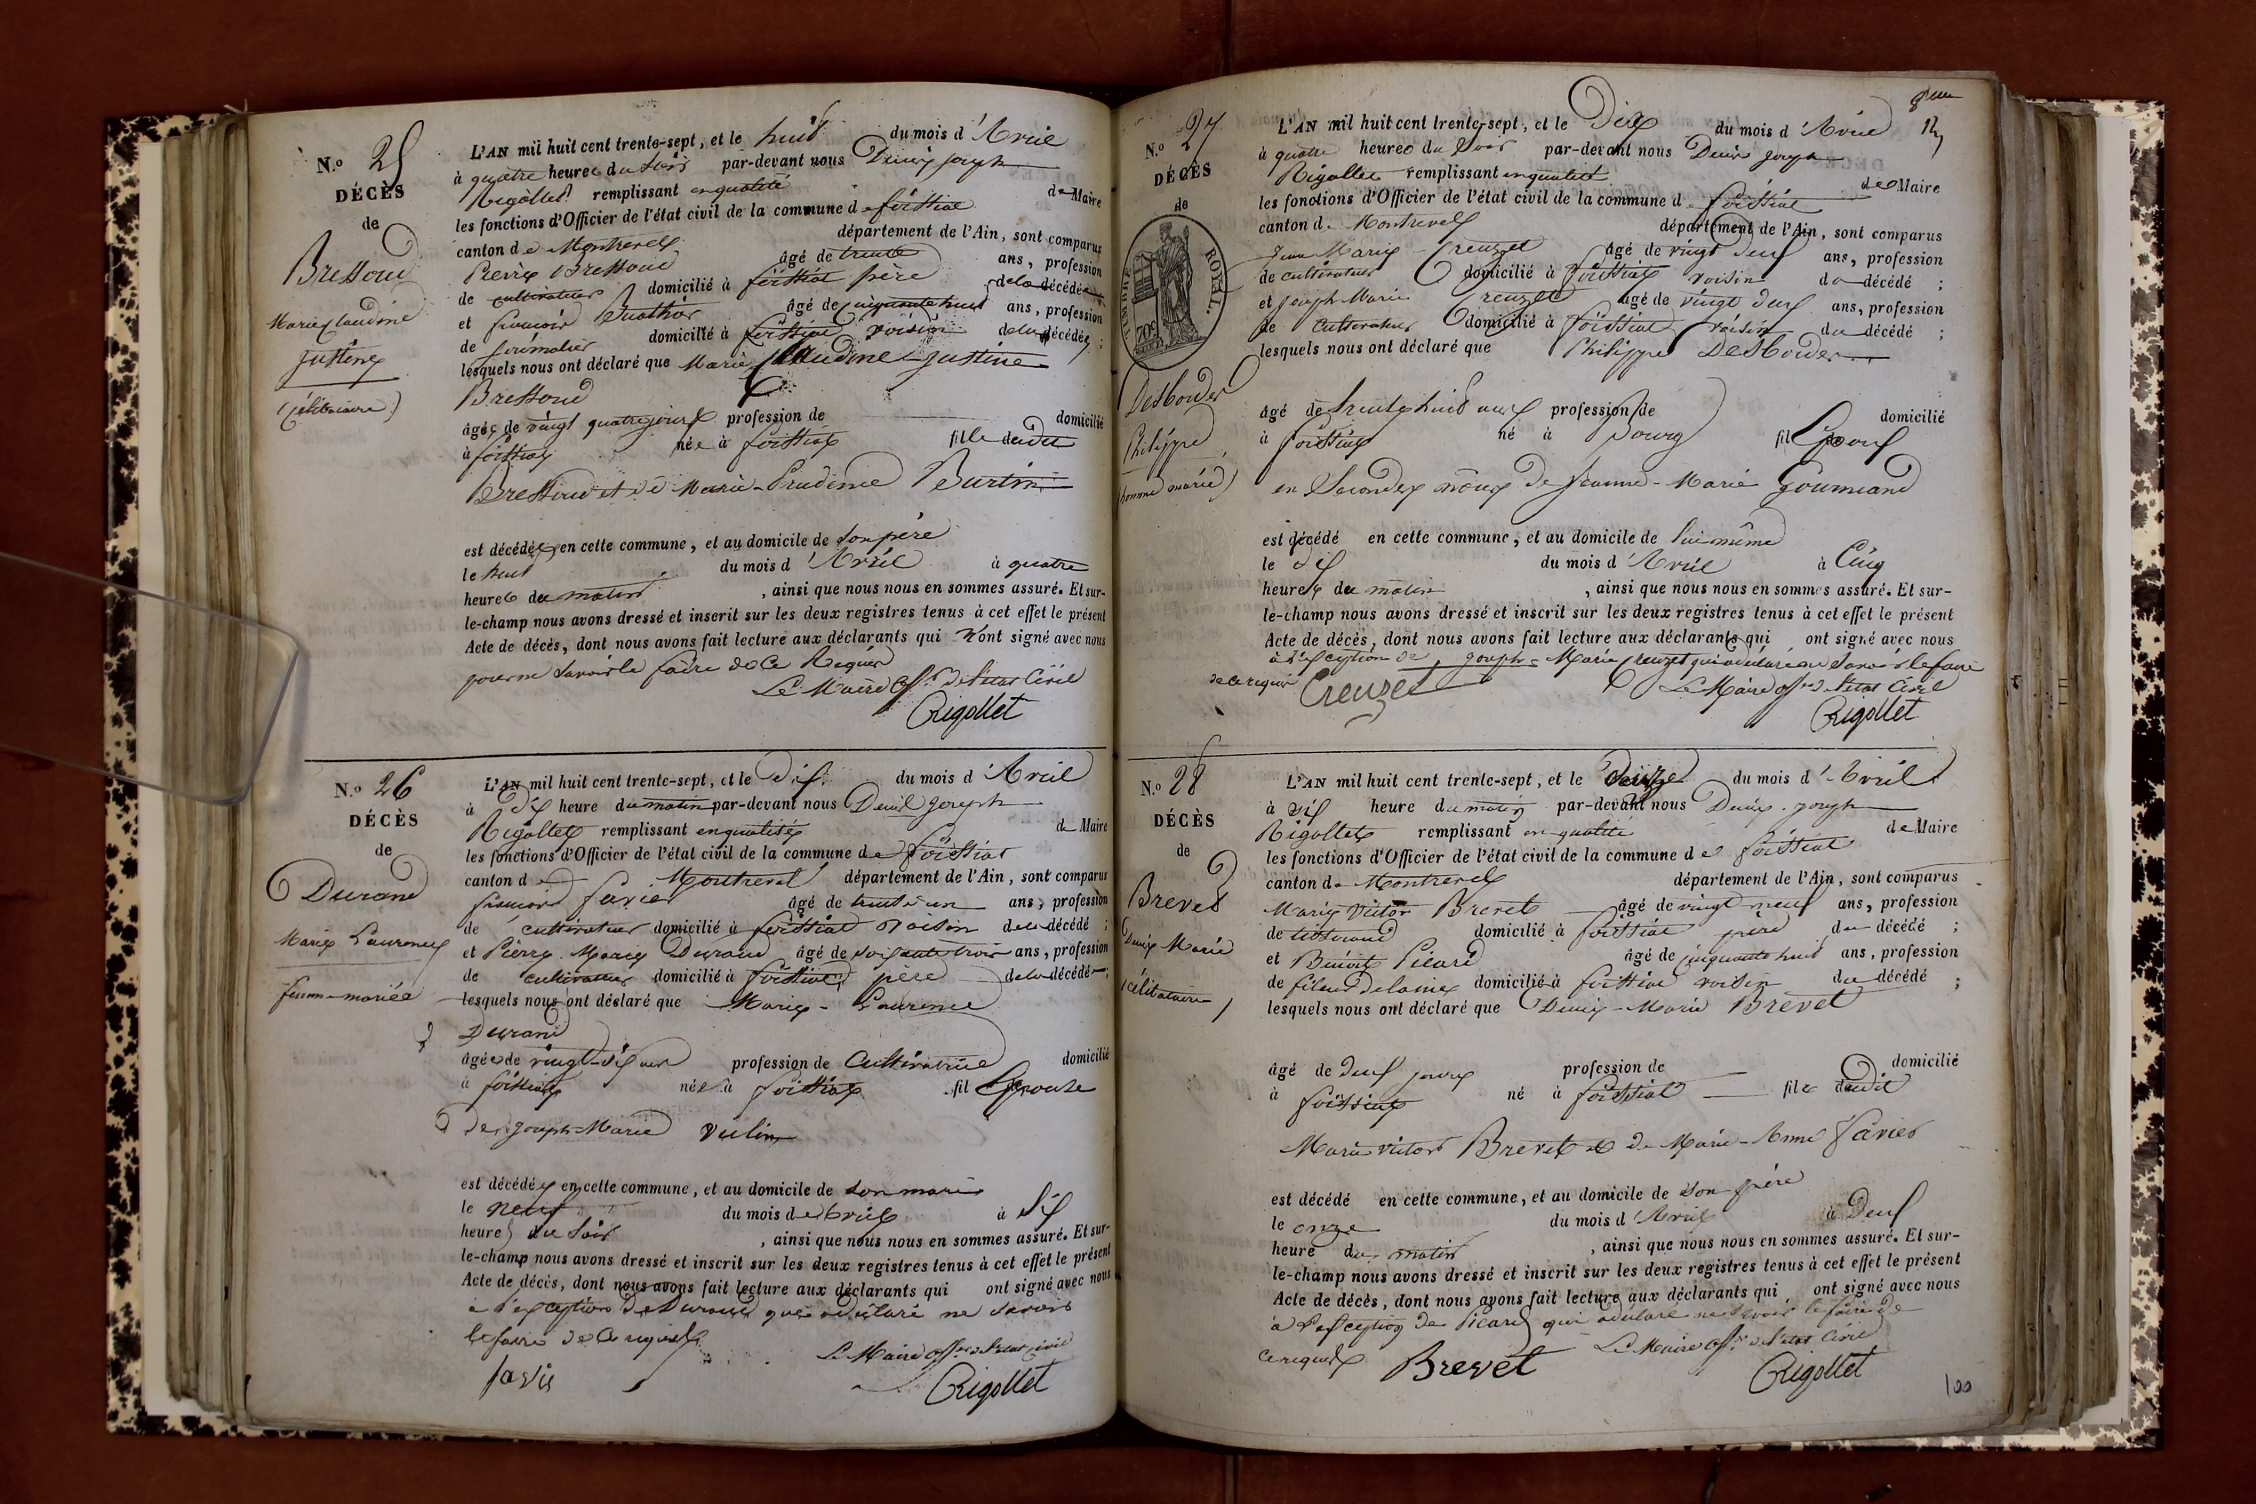 N.o 25
DÉCÈS
de
Bressoud
Marie Claudine
Justine
(célibataire)
L'AN mil huit cent trente-sept, et le huit du mois d'Avril
à quatre heures du soir par-devant nous Denis Joseph
Rigollet remplissant en qualité de Maire
les fonctions d'Officier de l'état civil de la commune de foissiat
canton de Montrevel département de l'Ain, sont comparus
Pierre Bressoud âgé de trente ans, profession
de cultivateur domicilié à foissiat père de la décédée
et françois âgé de cinquante huit ans, profession
de domicilié à foissiat voisin de la décédée ;
lesquels nous ont déclaré que Marie Claudine Justine
Bressoud
âgée de vingt quatre jours profession de domicilié
à foissiat née à foissiat fille dudit
Bressoud et de Marie-Prudence Burtin
est décédée en cette commune, et au domicile de son père
le huit du mois d'Avril à quatre
heures du matin, ainsi que nous nous en sommes assuré. Et sur-
le-champ nous avons dressé et inscrit sur les deux registres tenus à cet effet le présent
Acte de décès, dont nous avons fait lecture aux déclarants qui n'ont signé avec nous
pour ne savoir le faire de ce Requis
Le Maire off.r de l'état Civil
Rigollet
N.o 26
DÉCÈS
de
Durand
Marie Laurence
femme mariée
L'AN mil huit cent trente-sept, et le dix du mois d'Avril
à dix heure du matin par-devant nous Denis Joseph
Rigollet remplissant en qualité de Maire
les fonctions d'Officier de l'état civil de la commune de foissiat
canton de Montrevel département de l'Ain, sont comparus
françois favier âgé de trente un ans, profession
de cultivateur domicilié à foissiat voisin de la décédé ;
et Pierre Marie Durand âgé de soixante trois ans, profession
de cultivateur domicilié à foissiat père de la décédé ;
lesquels nous ont déclaré que Marie-Laurence
Durand
âgée de vingt-six ans profession de Cultivatrice domicilié
à foissiat née à foissiat fil Epouse
de Joseph-Marie vulin
est décédée en cette commune, et au domicile de son mari
le neuf du mois d'Avril à six
heures du soir, ainsi que nous nous en sommes assuré. Et sur-
le-champ nous avons dressé et inscrit sur les deux registres tenus à cet effet le présent
Acte de décès, dont nous avons fait lecture aux déclarants qui ont signé avec nous
à l'exception de Durand qui a déclaré ne savoir
le faire de ce requis
Le Maire off.r de l'état civil
favier
Rigollet
N.o 27
DÉCÈS
de
TIMBRE ROYAL
70c
Desbordes
Philippe
(homme marié)
L'AN mil huit cent trente-sept, et le Dix du mois d'Avril
à quatre heures du soir par-devant nous Denis Joseph
Rigollet remplissant en qualité de Maire
les fonctions d'Officier de l'état civil de la commune de foissiat
canton de Montrevel département de l'Ain, sont comparus
Jean Marie Creuzet âgé de vingt neuf ans, profession
de cultivateur domicilié à foissiat voisin du décédé ;
et Joseph Marie Creuzet âgé de vingt deux ans, profession
de cultivateur domicilié à foissiat voisin du décédé ;
lesquels nous ont déclaré que Philippe Desbordes
âgé de trente huit ans profession de domicilié
à foissiat né à Bourg fil Epoux
en Secondes nôces de Jeanne-Marie Gourmand
est décédé en cette commune, et au domicile de lui même
le dix du mois d'Avril à Cinq
heures du matin, ainsi que nous nous en sommes assuré. Et sur-
le-champ nous avons dressé et inscrit sur les deux registres tenus à cet effet le présent
Acte de décès, dont nous avons fait lecture aux déclarants qui ont signé avec nous
à l'exception de Joseph-Marie Creuzet qui a déclaré ne Savoir le faire
de ce requis
Creuzet
Le Maire off.r de l'état Civil
Rigollet
N.o 28
DÉCÈS
de
Brevet
Denis Marie
(célibataire)
L'AN mil huit cent trente-sept, et le douze du mois d'Avril
à dix heure du matin par-devant nous Denis Joseph
Rigollet remplissant en qualité de Maire
les fonctions d'Officier de l'état civil de la commune de foissiat
canton de Montrevel département de l'Ain, sont comparus
Marie Victor Brevet âgé de vingt neuf ans, profession
de tisserand domicilié à foissiat père du décédé ;
et Benoit Picard âgé de cinquante huit ans, profession
de fileur de laine domicilié à foissiat voisin du décédé ;
lesquels nous ont déclaré que Denis-Marie Brevet
âgé de deux jours profession de domicilié
à foissiat né à foissiat fils dudit
Marie Victor Brevet et de Marie-Anne favier
est décédé en cette commune, et au domicile de son père
le onze du mois d'Avril à Deux
heure du matin, ainsi que nous nous en sommes assuré. Et sur-
le-champ nous avons dressé et inscrit sur les deux registres tenus à cet effet le présent
Acte de décès, dont nous avons fait lecture aux déclarants qui ont signé avec nous
à l'exception de Picard qui a déclaré ne savoir le faire de
ce requis
Le Maire off.r de l'état Civil
Brevet
Rigollet
100